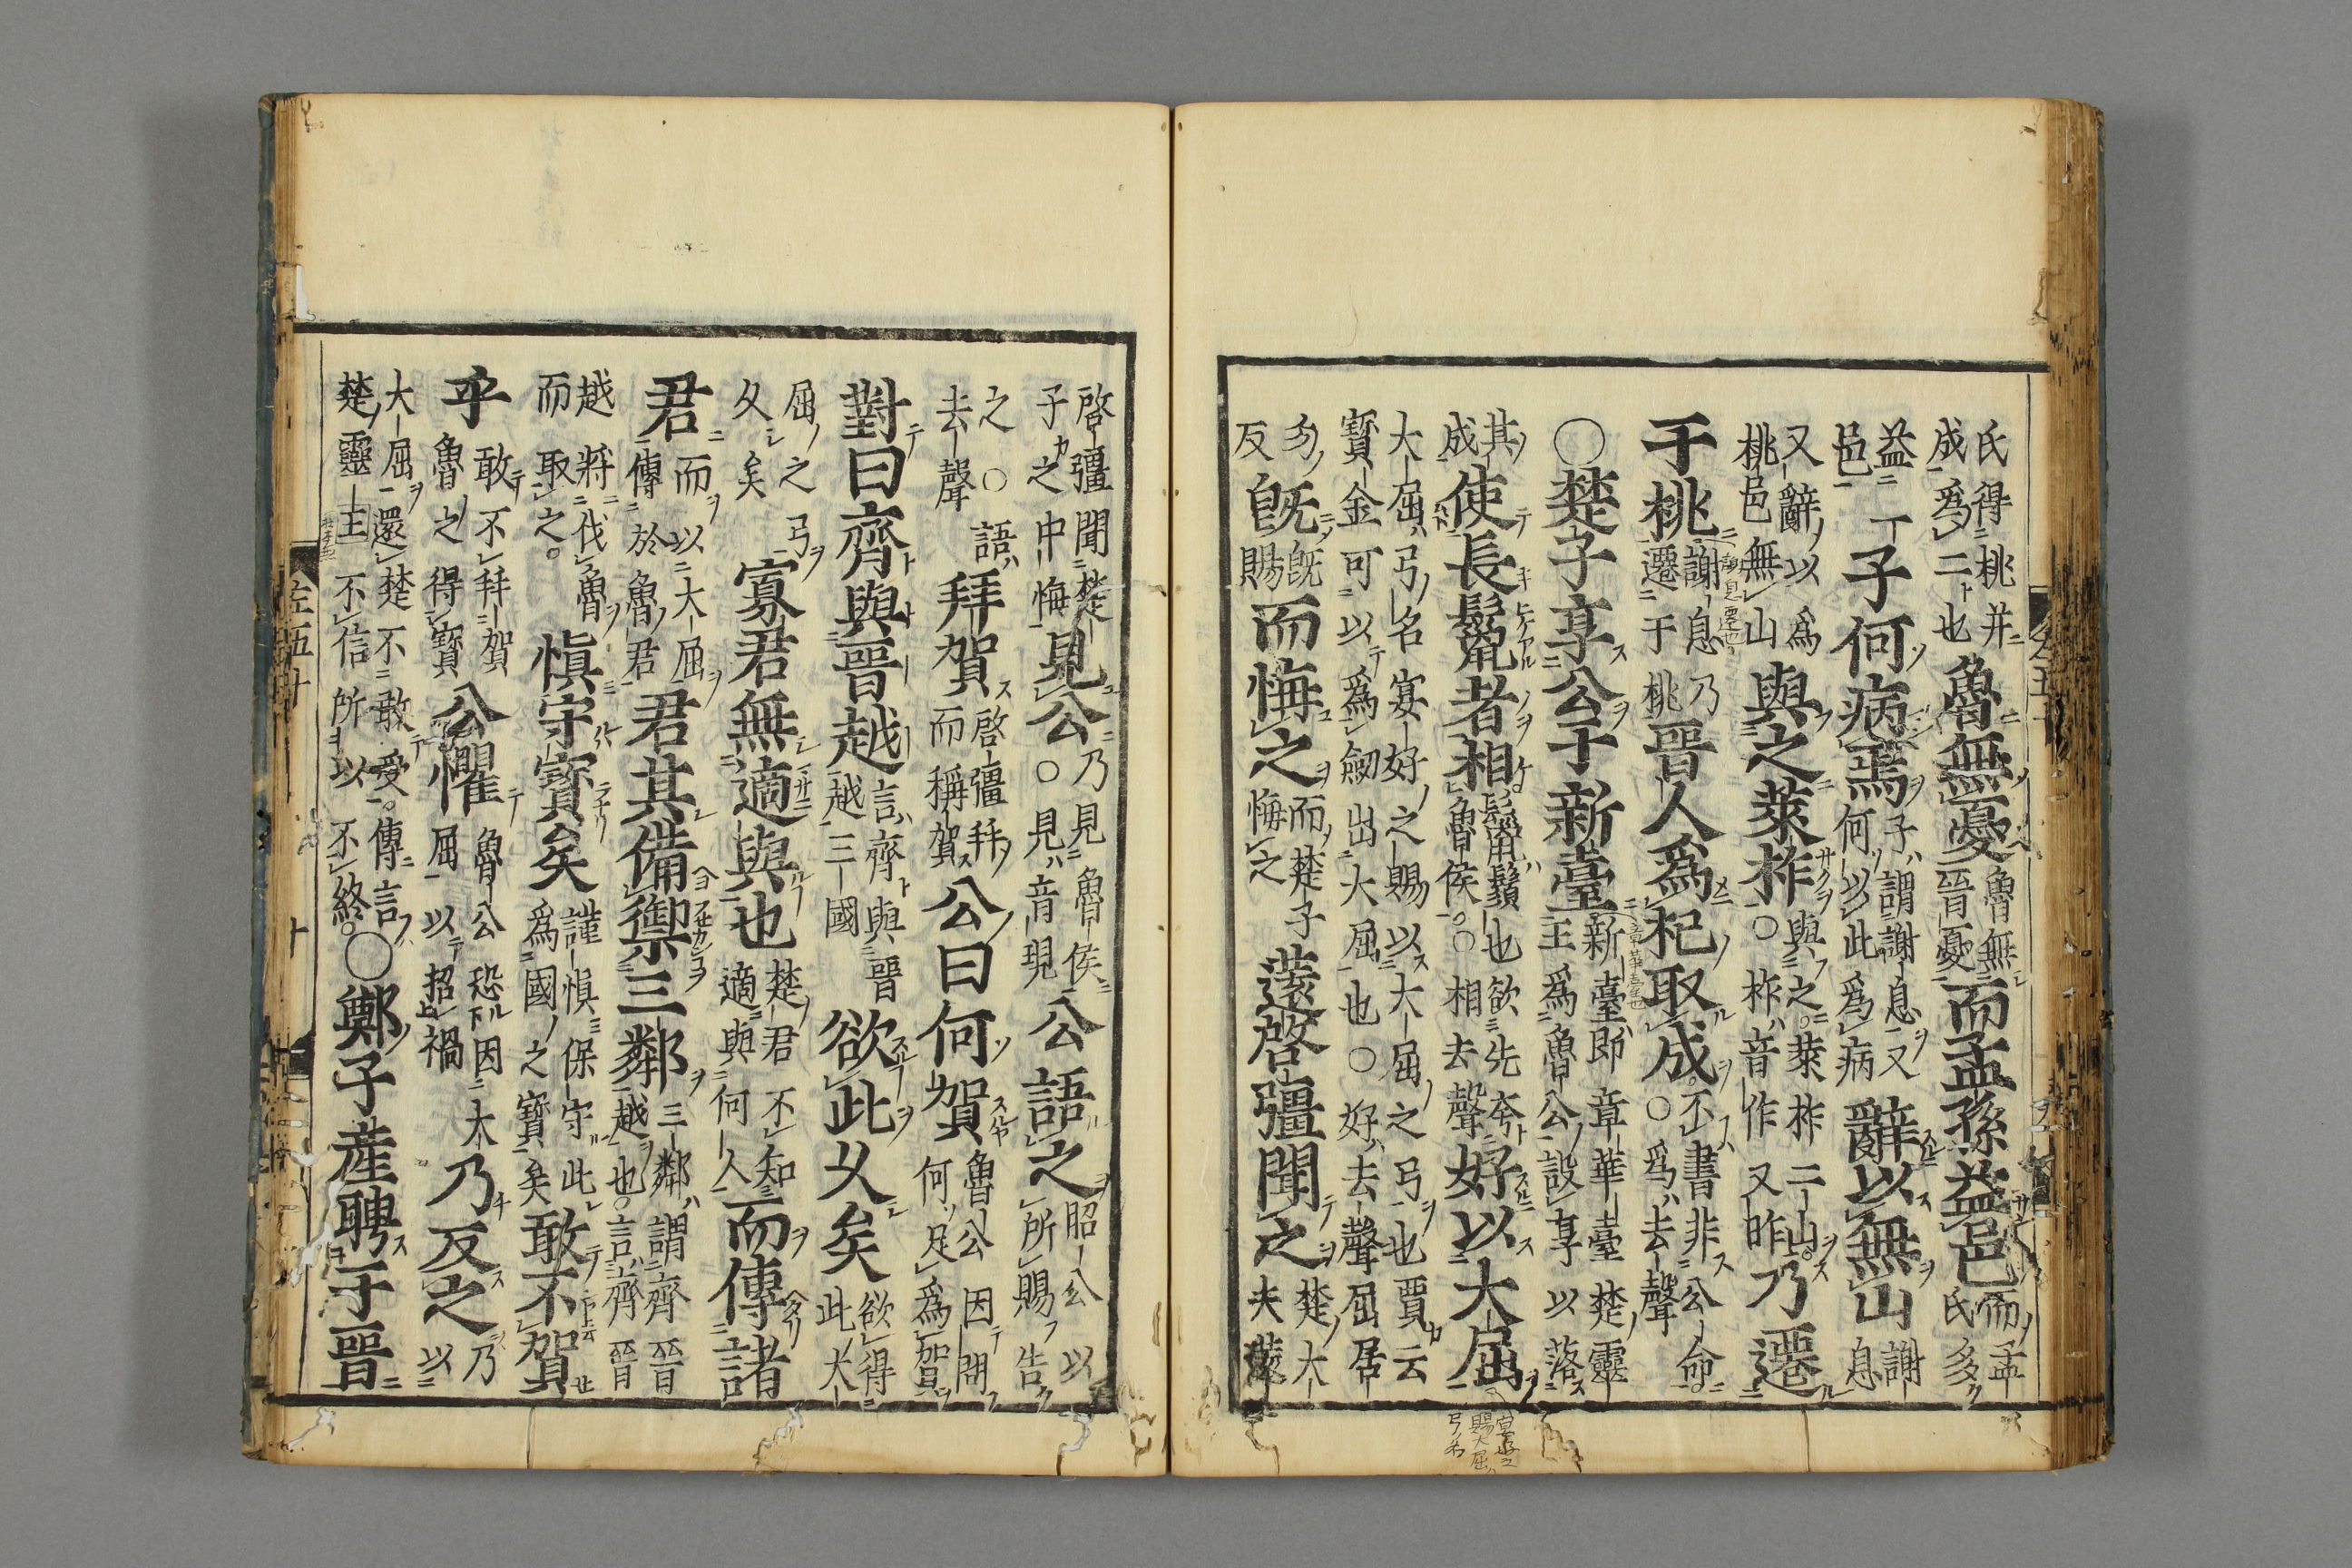 氏得桃并成爲二也魯無憂魯無晉憂而孟孫益邑而孟氏多
益邑丁子何病焉子謂謝息又何以此爲病辭以無山謝息
又辭以爲桃邑無山與之萊柞與之萊柞二山○柞音作又昨乃遷
于桃謝息乃遷于桃晉人爲杞取成不書非公命○爲去聲
○楚子享公于新臺新臺卽章華臺楚靈王爲魯公設享以落
其成使長鬣者相鬣鬚也欲先夸魯侯○相去聲好以大屈
大屈弓名宴好之賜以大屈之弓也賈云寶金可以爲劒出大屈也○好去聲屈居
勿反旣旣賜而悔之而楚子悔之薳啓彊聞之楚大夫薳
啓彊聞楚子之中悔見公乃見魯侯○見音現公語之昭公以所賜告
之○語去聲拜賀啓彊拜而稱賀公曰何賀魯公因問何足爲賀
對曰齊與晉越言齊與晉越三國欲此久矣欲得此大
屈之弓久矣寡君無適與也楚君不知適與何人而傳諸
君而以大屈傳於魯君君其備禦三鄰三鄰謂齊晉越也言齊晉
越將伐魯而取之愼守寶矣謹愼保守此爲國之寶矣敢不賀
乎敢不拜賀魯之得寶公懼魯公恐因大屈以招禍乃反之乃以
大屈還楚不敢受傳言楚靈王不信所以不終○鄭子産聘于晉
左五十
十